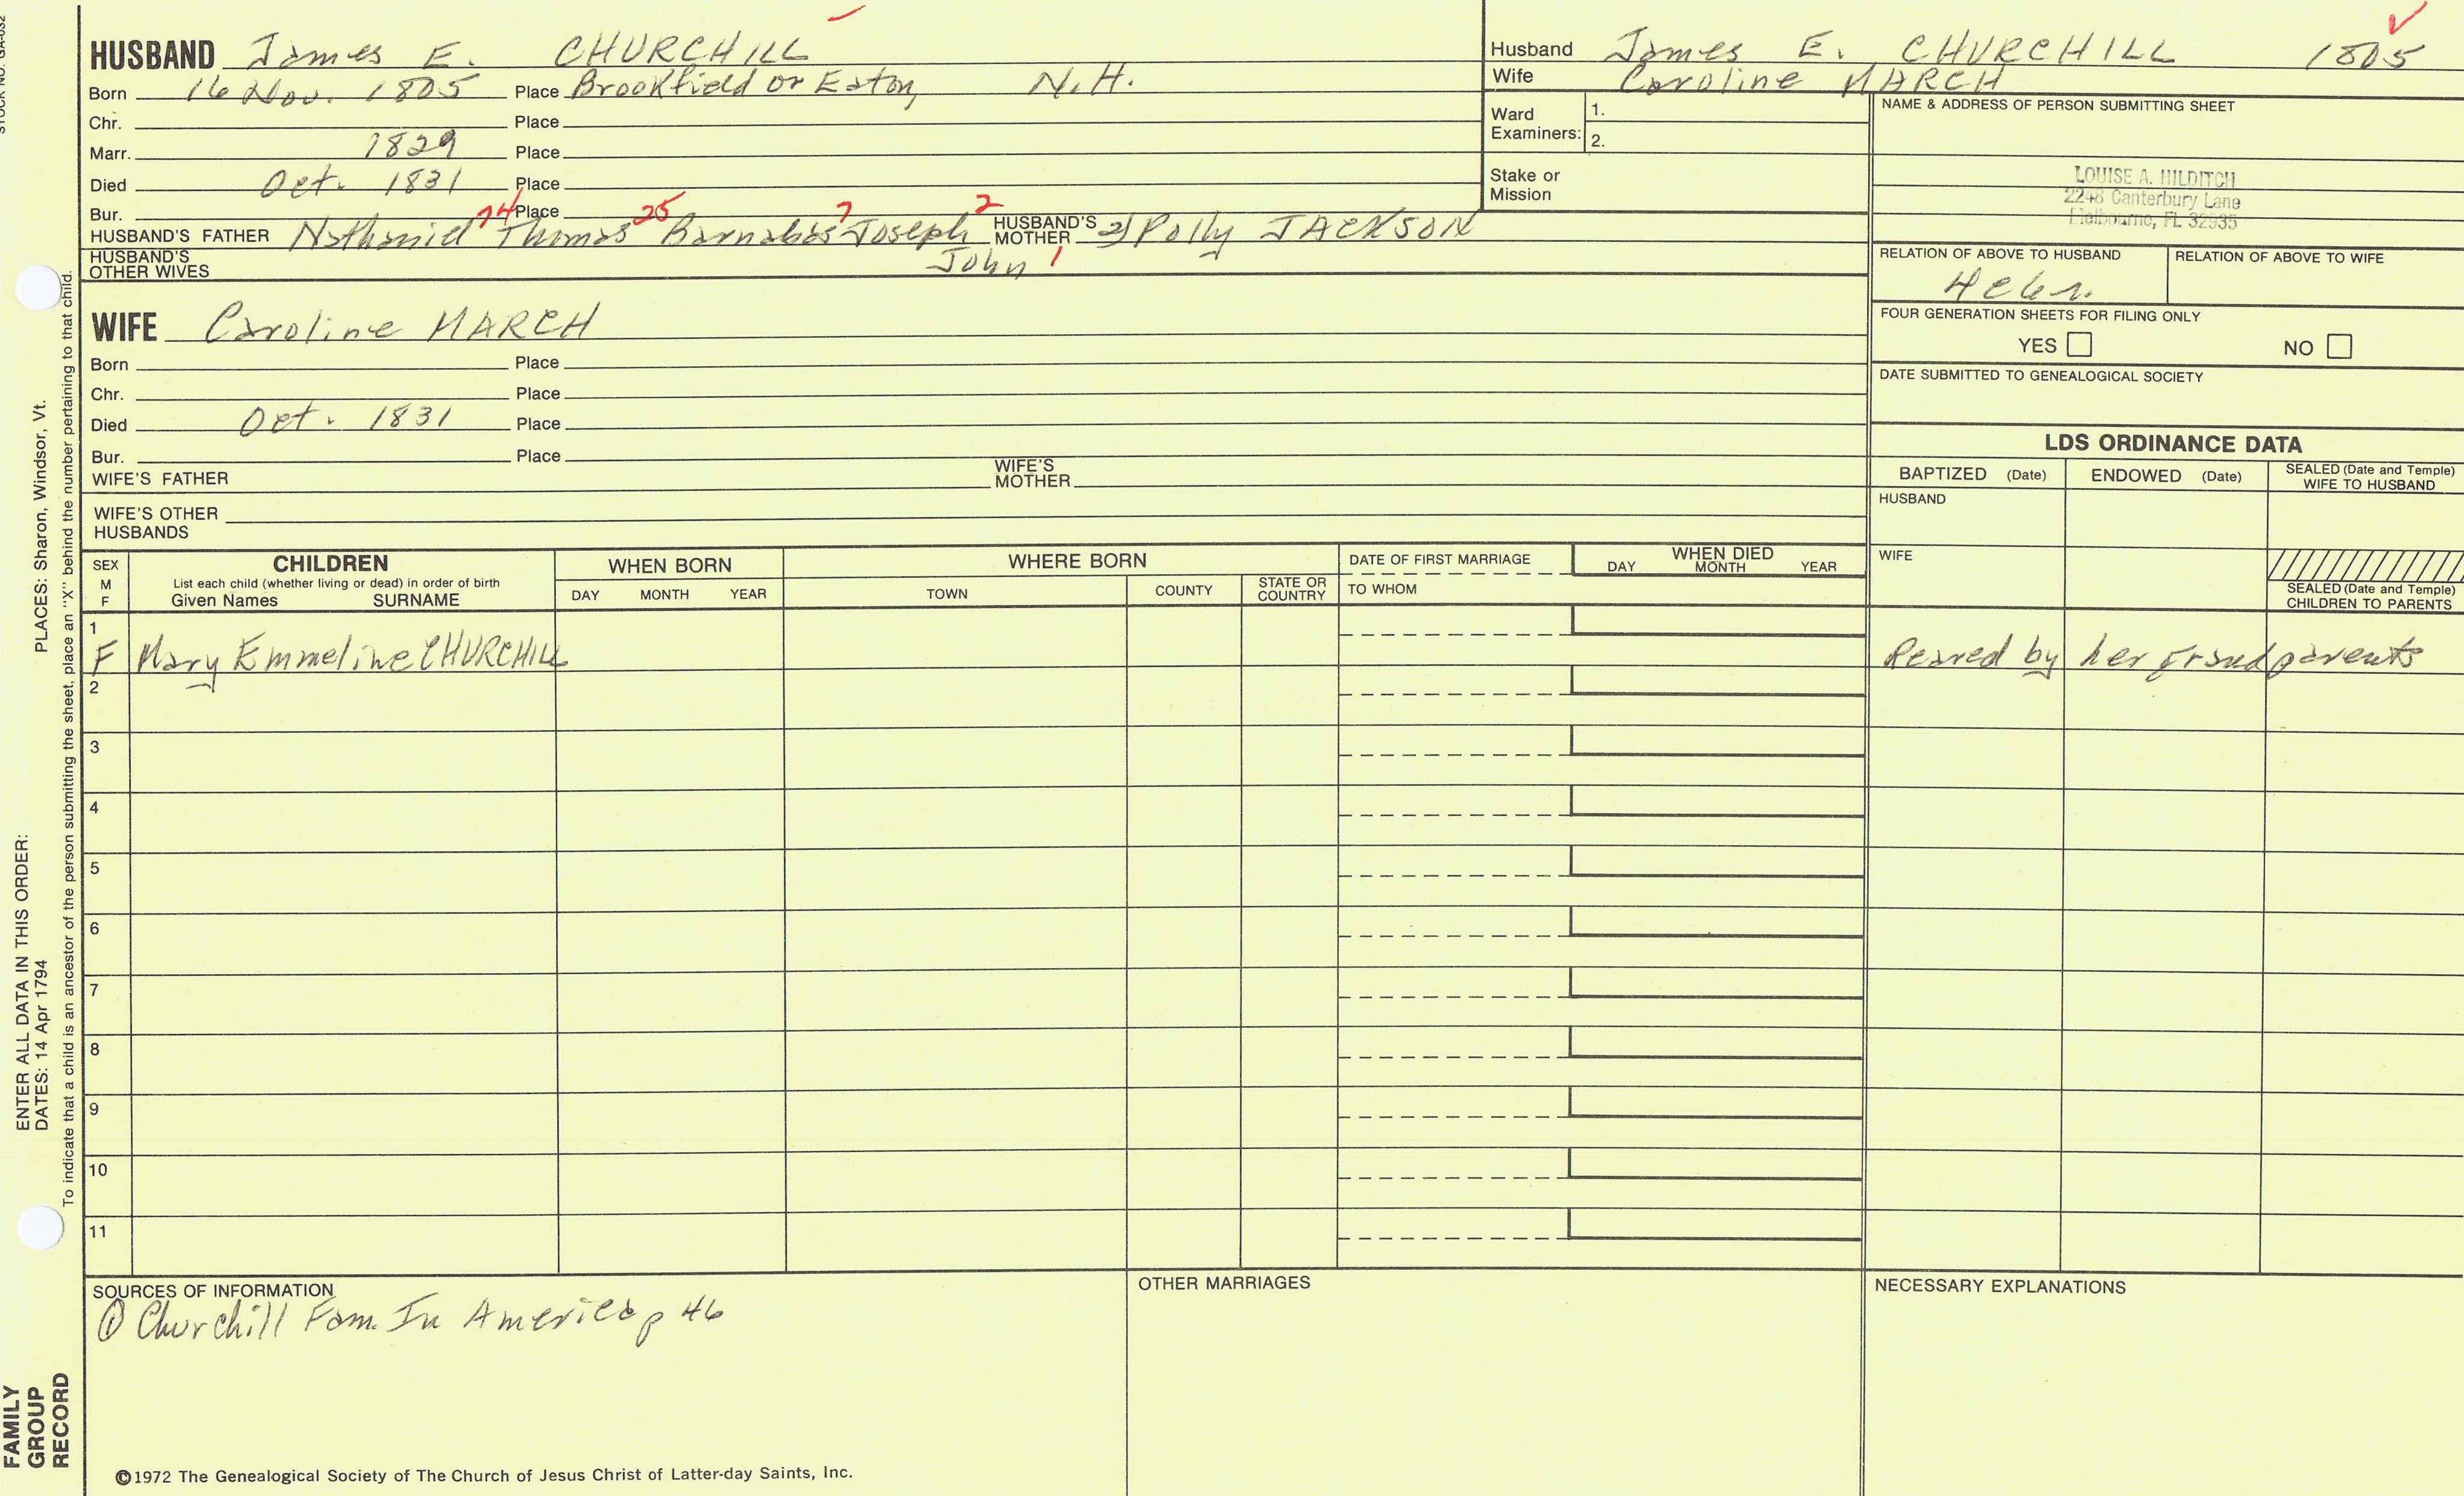 STOCK NO. GA-032
HUSBAND James E. CHURCHILL
Born 16 Nov. 1805 Place Brookfield or Eaton, N.H.
Chr. Place
Marr. 1829 Place
Died Oct. 1831 Place
Bur. Place
HUSBAND'S FATHER Nathaniel Thomas Barnabas Joseph 2 HUSBAND'S MOTHER 2) Polly JACKSON
John 1
HUSBAND'S OTHER WIVES
Husband James E. CHURCHILL 1805
Wife Caroline MARCH
Ward Examiners: 1.
2.
Stake or Mission
NAME & ADDRESS OF PERSON SUBMITTING SHEET
LOUISE A. HILDITCH
2248 Canterbury Lane
Melbourne, FL 32935
RELATION OF ABOVE TO HUSBAND RELATION OF ABOVE TO WIFE
FOUR GENERATION SHEETS FOR FILING ONLY
YES NO
DATE SUBMITTED TO GENEALOGICAL SOCIETY
WIFE Caroline MARCH
Born Place
Chr. Place
Died Oct. 1831 Place
Bur. Place
WIFE'S FATHER WIFE'S MOTHER
WIFE'S OTHER HUSBANDS
LDS ORDINANCE DATA
BAPTIZED (Date) ENDOWED (Date) SEALED (Date and Temple) WIFE TO HUSBAND
HUSBAND
WIFE
SEALED (Date and Temple) CHILDREN TO PARENTS
SEX M F
CHILDREN
List each child (whether living or dead) in order of birth
Given Names SURNAME
WHEN BORN
DAY MONTH YEAR
WHERE BORN
TOWN COUNTY STATE OR COUNTRY
DATE OF FIRST MARRIAGE
TO WHOM
WHEN DIED
DAY MONTH YEAR
1
F Mary Emmeline CHURCHILL Reared by her grandparents
2
3
4
5
6
7
8
9
10
11
SOURCES OF INFORMATION
① Churchill Fam. In America p 46
OTHER MARRIAGES
NECESSARY EXPLANATIONS
©1972 The Genealogical Society of The Church of Jesus Christ of Latter-day Saints, Inc.
FAMILY GROUP RECORD
ENTER ALL DATA IN THIS ORDER:
DATES: 14 Apr 1794
PLACES: Sharon, Windsor, Vt.
To indicate that a child is an ancestor of the person submitting the sheet, place an "X" behind the number pertaining to that child.